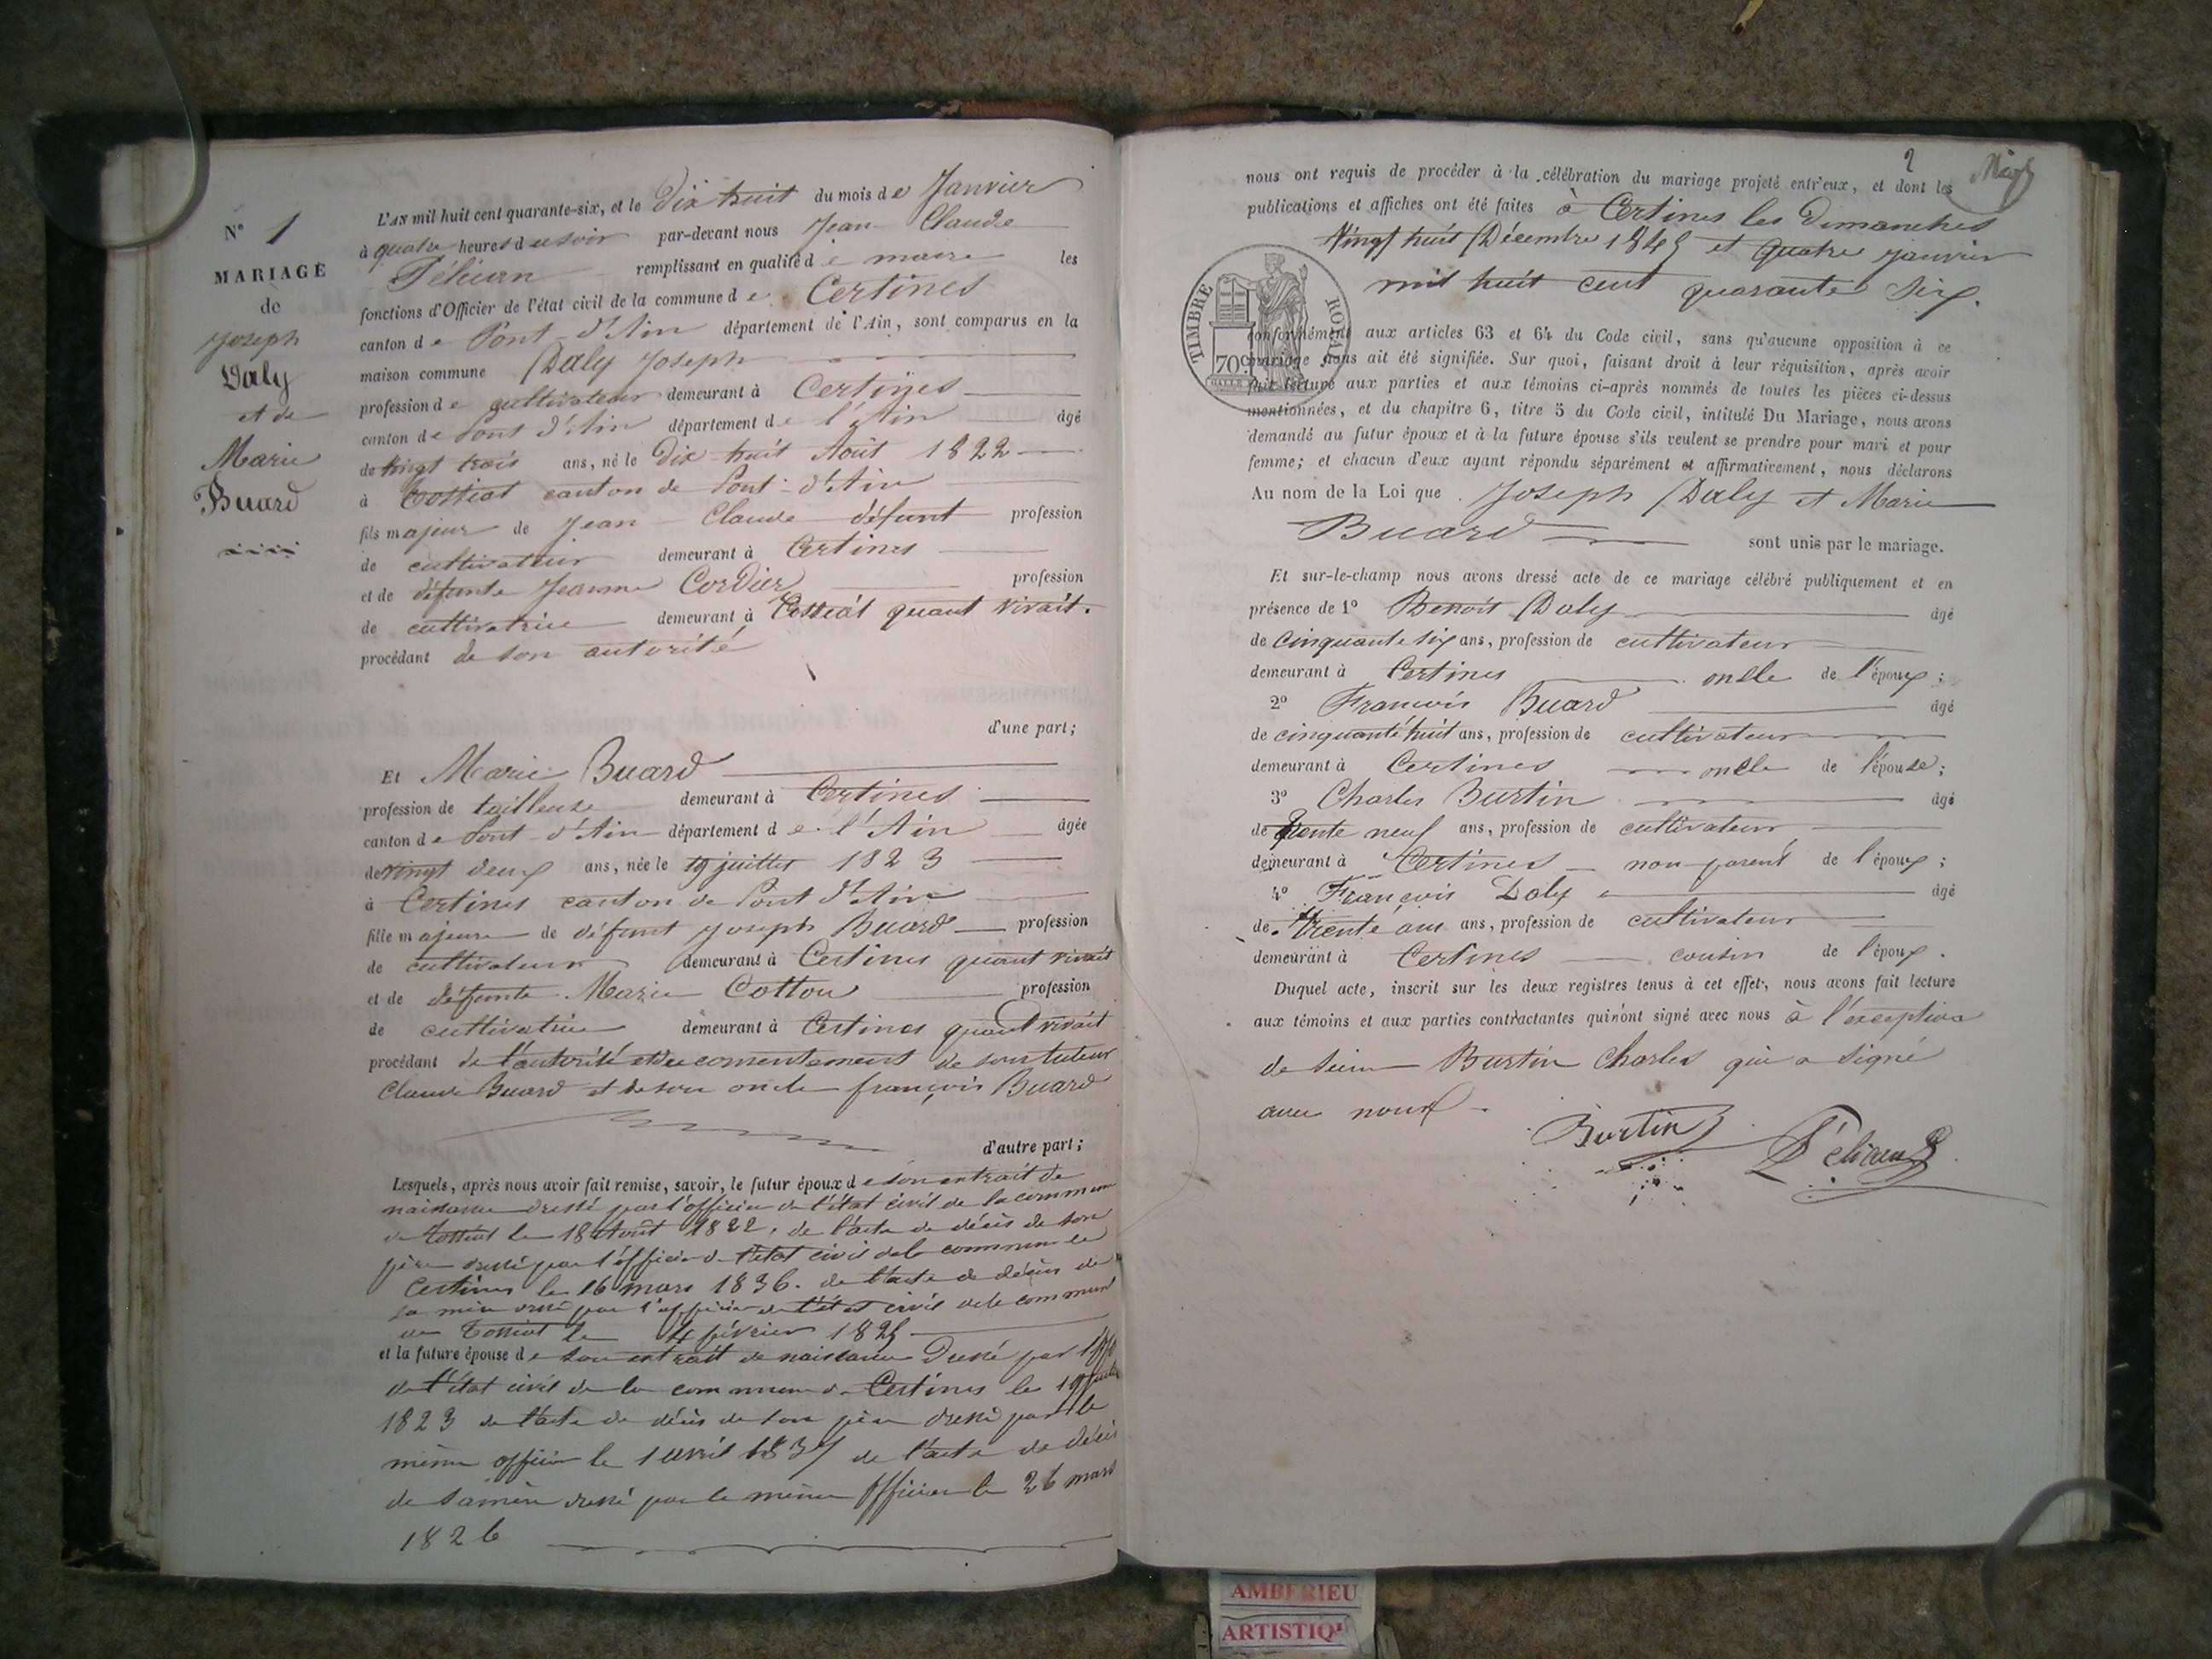 N° 1
MARIAGE
de
Joseph
Daly
et de
Marie
Buard
L'AN mil huit cent quarante-six, et le Dix huit du mois de Janvier
à quatre heures du soir par-devant nous Jean Claude
Péliean remplissant en qualité de maire les
fonctions d'Officier de l'état civil de la commune de Certines
canton de Pont d'Ain département de l'Ain, sont comparus en la
maison commune Daly Joseph
profession de cultivateur demeurant à Certines
canton de Pont d'Ain département de l'Ain âgé
de vingt trois ans, né le Dix-huit Août 1822
à Tossiat canton de Pont-d'Ain
fils majeur de Jean Claude défunt profession
de cultivateur demeurant à Certines
et de défunte Jeanne Cordier profession
de cultivatrice demeurant à Tossiat quant vivait.
procédant de son autorité
d'une part;
Et Marie Buard
profession de tailleuse demeurant à Certines
canton de Pont-d'Ain département de l'Ain âgée
de vingt deux ans, née le 19 juillet 1823
à Certines canton de Pont d'Ain
fille majeure de défunt Joseph Buard profession
de cultivateur demeurant à Certines quant vivait
et de défunte Marie Cottou profession
de cultivatrice demeurant à Certines quant vivait
procédant de l'autorité et du consentement de son tuteur
Claude Buard et de son oncle françois Buard
d'autre part;
Lesquels, après nous avoir fait remise, savoir, le futur époux de son extrait de
naissance dressé par l'officier de l'état civil de la commune
de Tossiat le 18 Août 1822, de l'acte de décès de son
père dressé par l'officier de l'état civil de la commune de
Certines le 16 mars 1836. de l'acte de décès de
sa mère dressé par l'officier de l'état civil de la commune
de Tossiat le 4 février 1825
et la future épouse de son extrait de naissance Dressé par
de l'état civil de la commune de Certines le 19 juillet
1823 de l'acte de décès de son père dressé par le
même officier le 1 avril 1837 de l'acte de décès
de sa mère dressé par le même officier le 26 mars
1826
2
nous ont requis de procéder à la célébration du mariage projeté entr'eux, et dont les
publications et affiches ont été faites à Certines les Dimanches
Vingt huit Décembre 1845 et quatre janvier
mil huit cent quarante six.
TIMBRE ROYAL
70c
conformément aux articles 63 et 64 du Code civil, sans qu'aucune opposition à ce
mariage nous ait été signifiée. Sur quoi, faisant droit à leur réquisition, après avoir
fait lecture aux parties et aux témoins ci-après nommés de toutes les pièces ci-dessus
mentionnées, et du chapitre 6, titre 5 du Code civil, intitulé Du Mariage, nous avons
demandé au futur époux et à la future épouse s'ils veulent se prendre pour mari et pour
femme; et chacun d'eux ayant répondu séparément et affirmativement, nous déclarons
Au nom de la Loi que Joseph Daly et Marie
Buard sont unis par le mariage.
Et sur-le-champ nous avons dressé acte de ce mariage célébré publiquement et en
présence de 1° Benoit Daly âgé
de cinquante six ans, profession de cultivateur
demeurant à Certines oncle de l'époux;
2° François Buard âgé
de cinquante huit ans, profession de cultivateur
demeurant à Certines oncle de l'épouse;
3° Charles Burtin âgé
de trente neuf ans, profession de cultivateur
demeurant à Certines non parent de l'époux;
4° François Daly âgé
de trente ans ans, profession de cultivateur
demeurant à Certines cousin de l'époux.
Duquel acte, inscrit sur les deux registres tenus à cet effet, nous avons fait lecture
aux témoins et aux parties contractantes qui n'ont signé avec nous à l'exception
de sieur Burtin Charles qui a signé
avec nous.
Burtin Péliean
AMBERIEU
ARTISTIQ